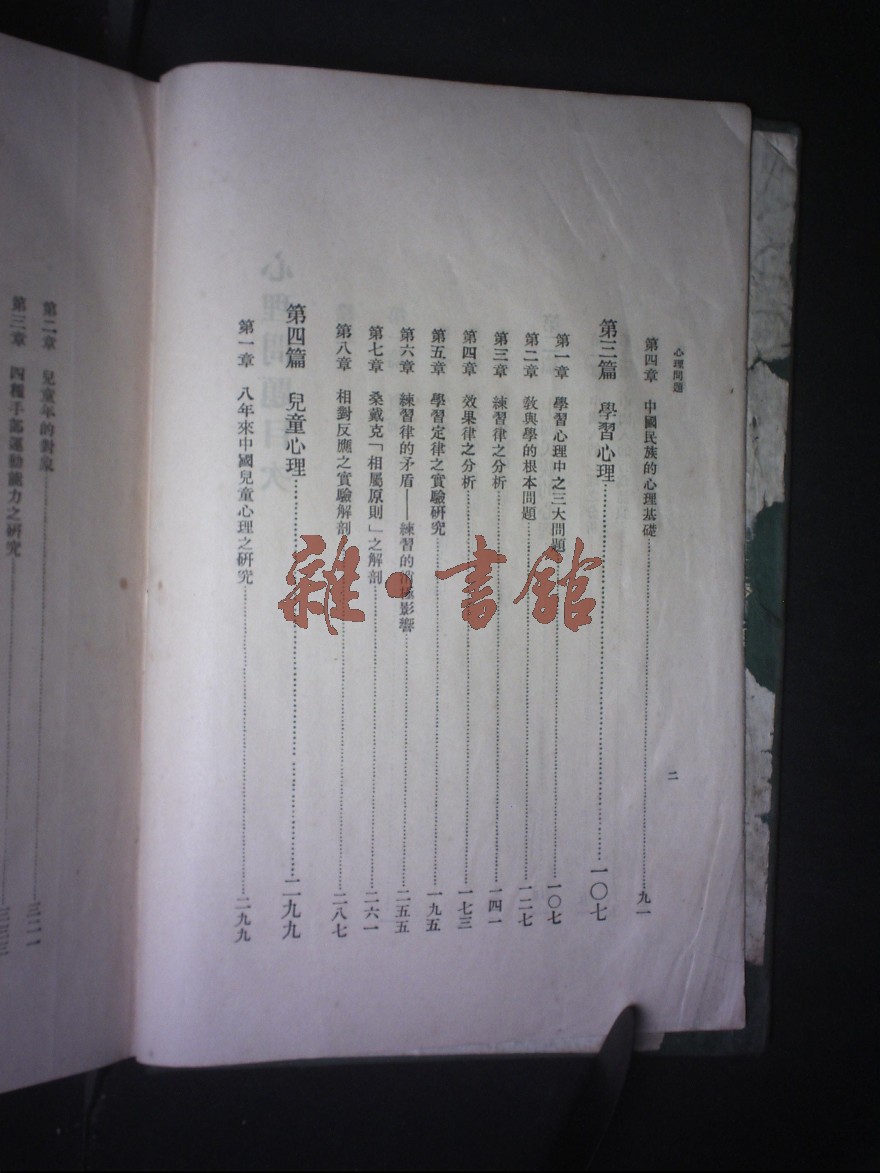 心理問題
二
第四章　中國民族的心理基礎……九一
第三篇　學習心理……一〇七
第一章　學習心理中之三大問題……一〇七
第二章　敎與學的根本問題……一二七
第三章　練習律之分析……一四一
第四章　效果律之分析……一七三
第五章　學習定律之實驗硏究……一九五
第六章　練習律的矛盾——練習的消極影響……二五五
第七章　桑戴克「相屬原則」之解剖……二六一
第八章　相對反應之實驗解剖……二八七
第四篇　兒童心理……二九九
第一章　八年來中國兒童心理之硏究……二九九
第二章　兒童年的對象……三二一
第三章　四種手部運動能力之硏究……三三三
雜·書館